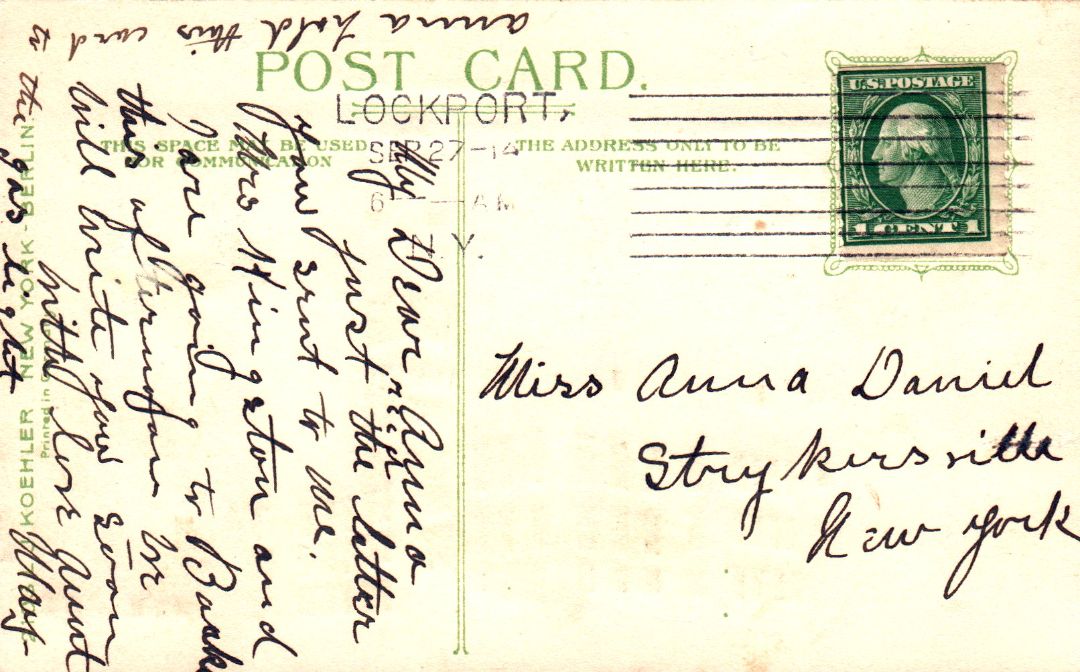 POST CARD.
THIS SPACE MAY BE USED
FOR COMMUNICATION
THE ADDRESS ONLY TO BE
WRITTEN HERE.
LOCKPORT,
SEP 27-14
6 — AM
N.Y.
U.S. POSTAGE
1 CENT 1
My Dear Anna
just rec'd the letter
you sent to me.
Mrs Hingston and
I are going to
this afternoon we
will write you soon
with love Aunt
May-
Anna hold this card to
the
gas light
Miss Anna Daniel
Strykersville
New York
KOEHLER NEW YORK - BERLIN
Printed in